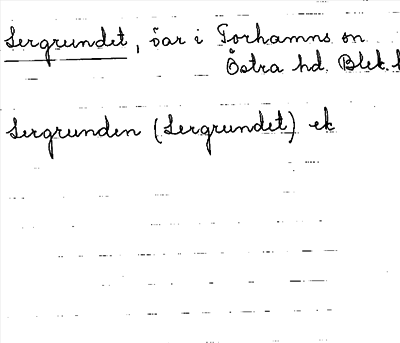 Lergrundet, öar i Torhamns sn
Östra hd. Blek. l
Lergrunden (Lergrundet) ek